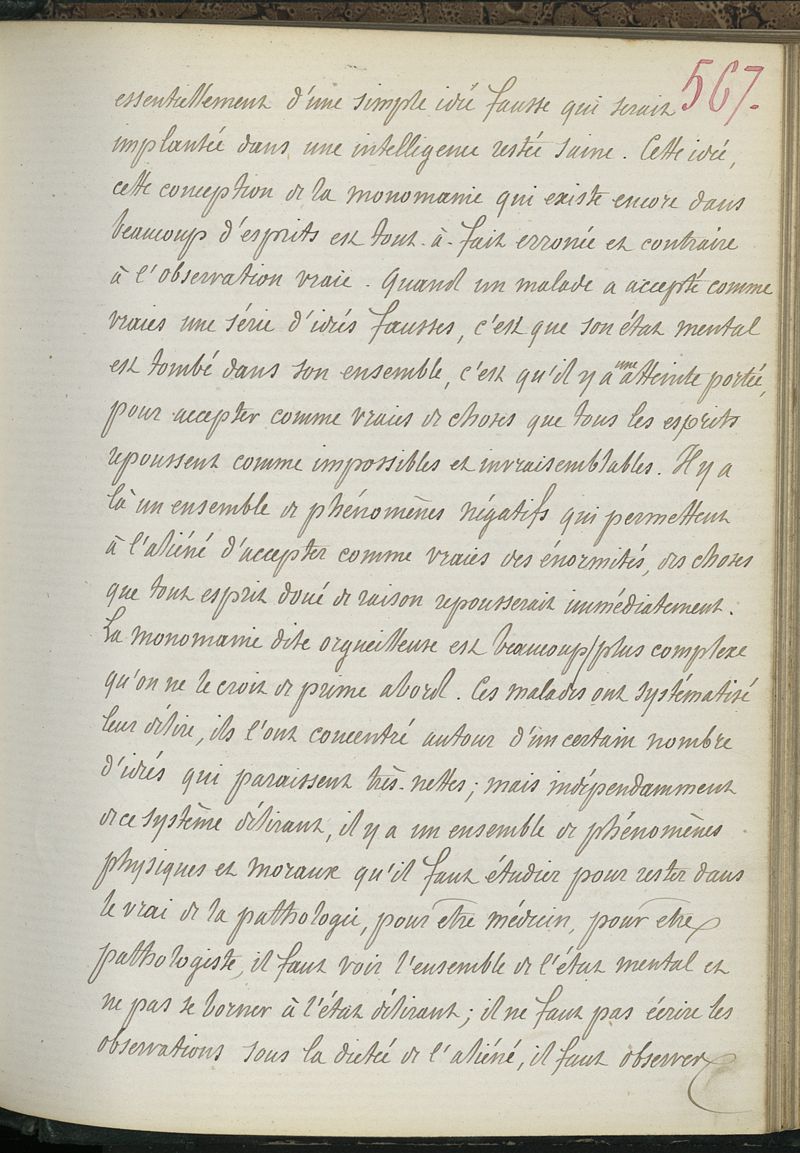 567.
essentiellement d'une simple idée fausse qui serait
implantée dans une intelligence restée saine. Cette idée,
cette conception de la monomanie qui existe encore dans
beaucoup d'esprits est tout-à-fait erronée et contraire
à l'observation vraie. Quand un malade a accepté comme
vraies une série d'idées fausses, c'est que son état mental
est tombé dans son ensemble, c'est qu'il y a une atteinte portée,
pour accepter comme vraies de choses que tous les esprits
repoussent comme impossibles et invraisemblables. Il y a
là un ensemble de phénomènes négatifs qui permettent
à l'aliéné d'accepter comme vraies des énormités, des choses
que tout esprit doué de raison repousserait immédiatement.
La monomanie dite orgueilleuse est beaucoup plus complexe
qu'on ne le croit de prime abord. Ces malades ont systématisé
leur délire, ils l'ont concentré autour d'un certain nombre
d'idées qui paraissent très-nettes; mais indépendamment
de ce système délirant, il y a un ensemble de phénomènes
physiques et moraux qu'il faut étudier pour rester dans
le vrai de la pathologie, pour être médecin, pour être
pathologiste, il faut voir l'ensemble de l'état mental et
ne pas se borner à l'état délirant; il ne faut pas écrire les
observations sous la dictée de l'aliéné, il faut observer